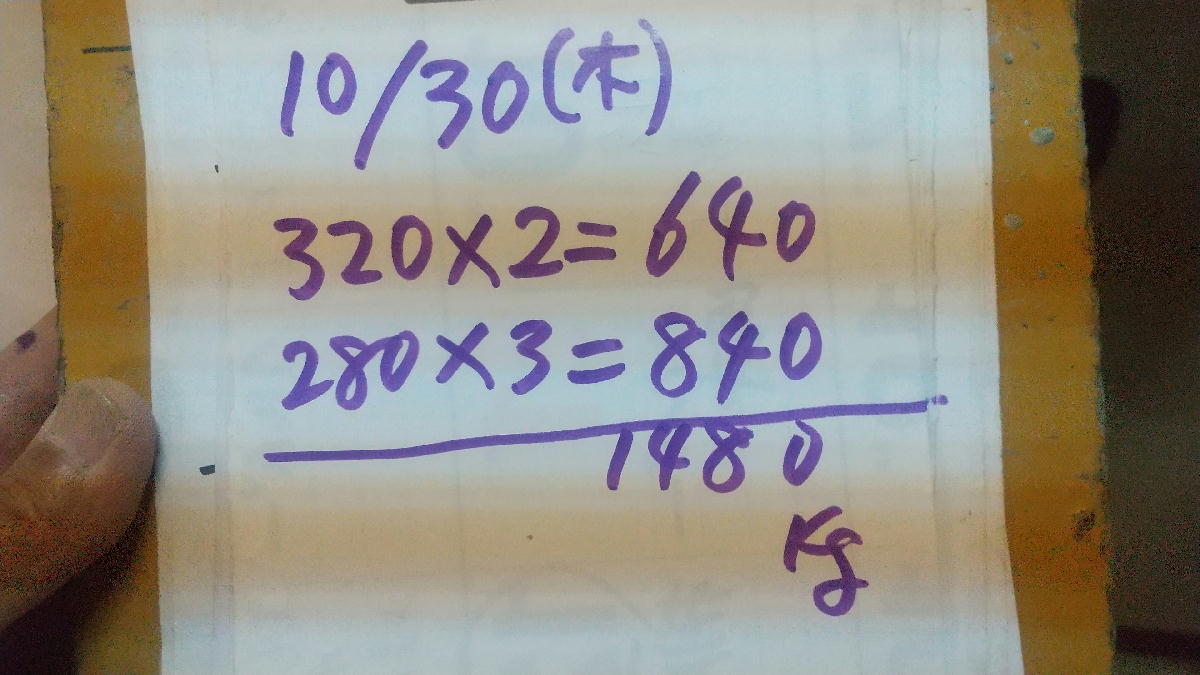 10/30(木)
320×2=640
280×3=840
1480
Kg